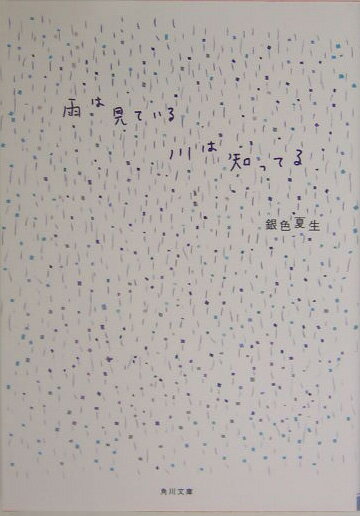 雨は見ている
川は知ってる
銀色夏生
角川文庫